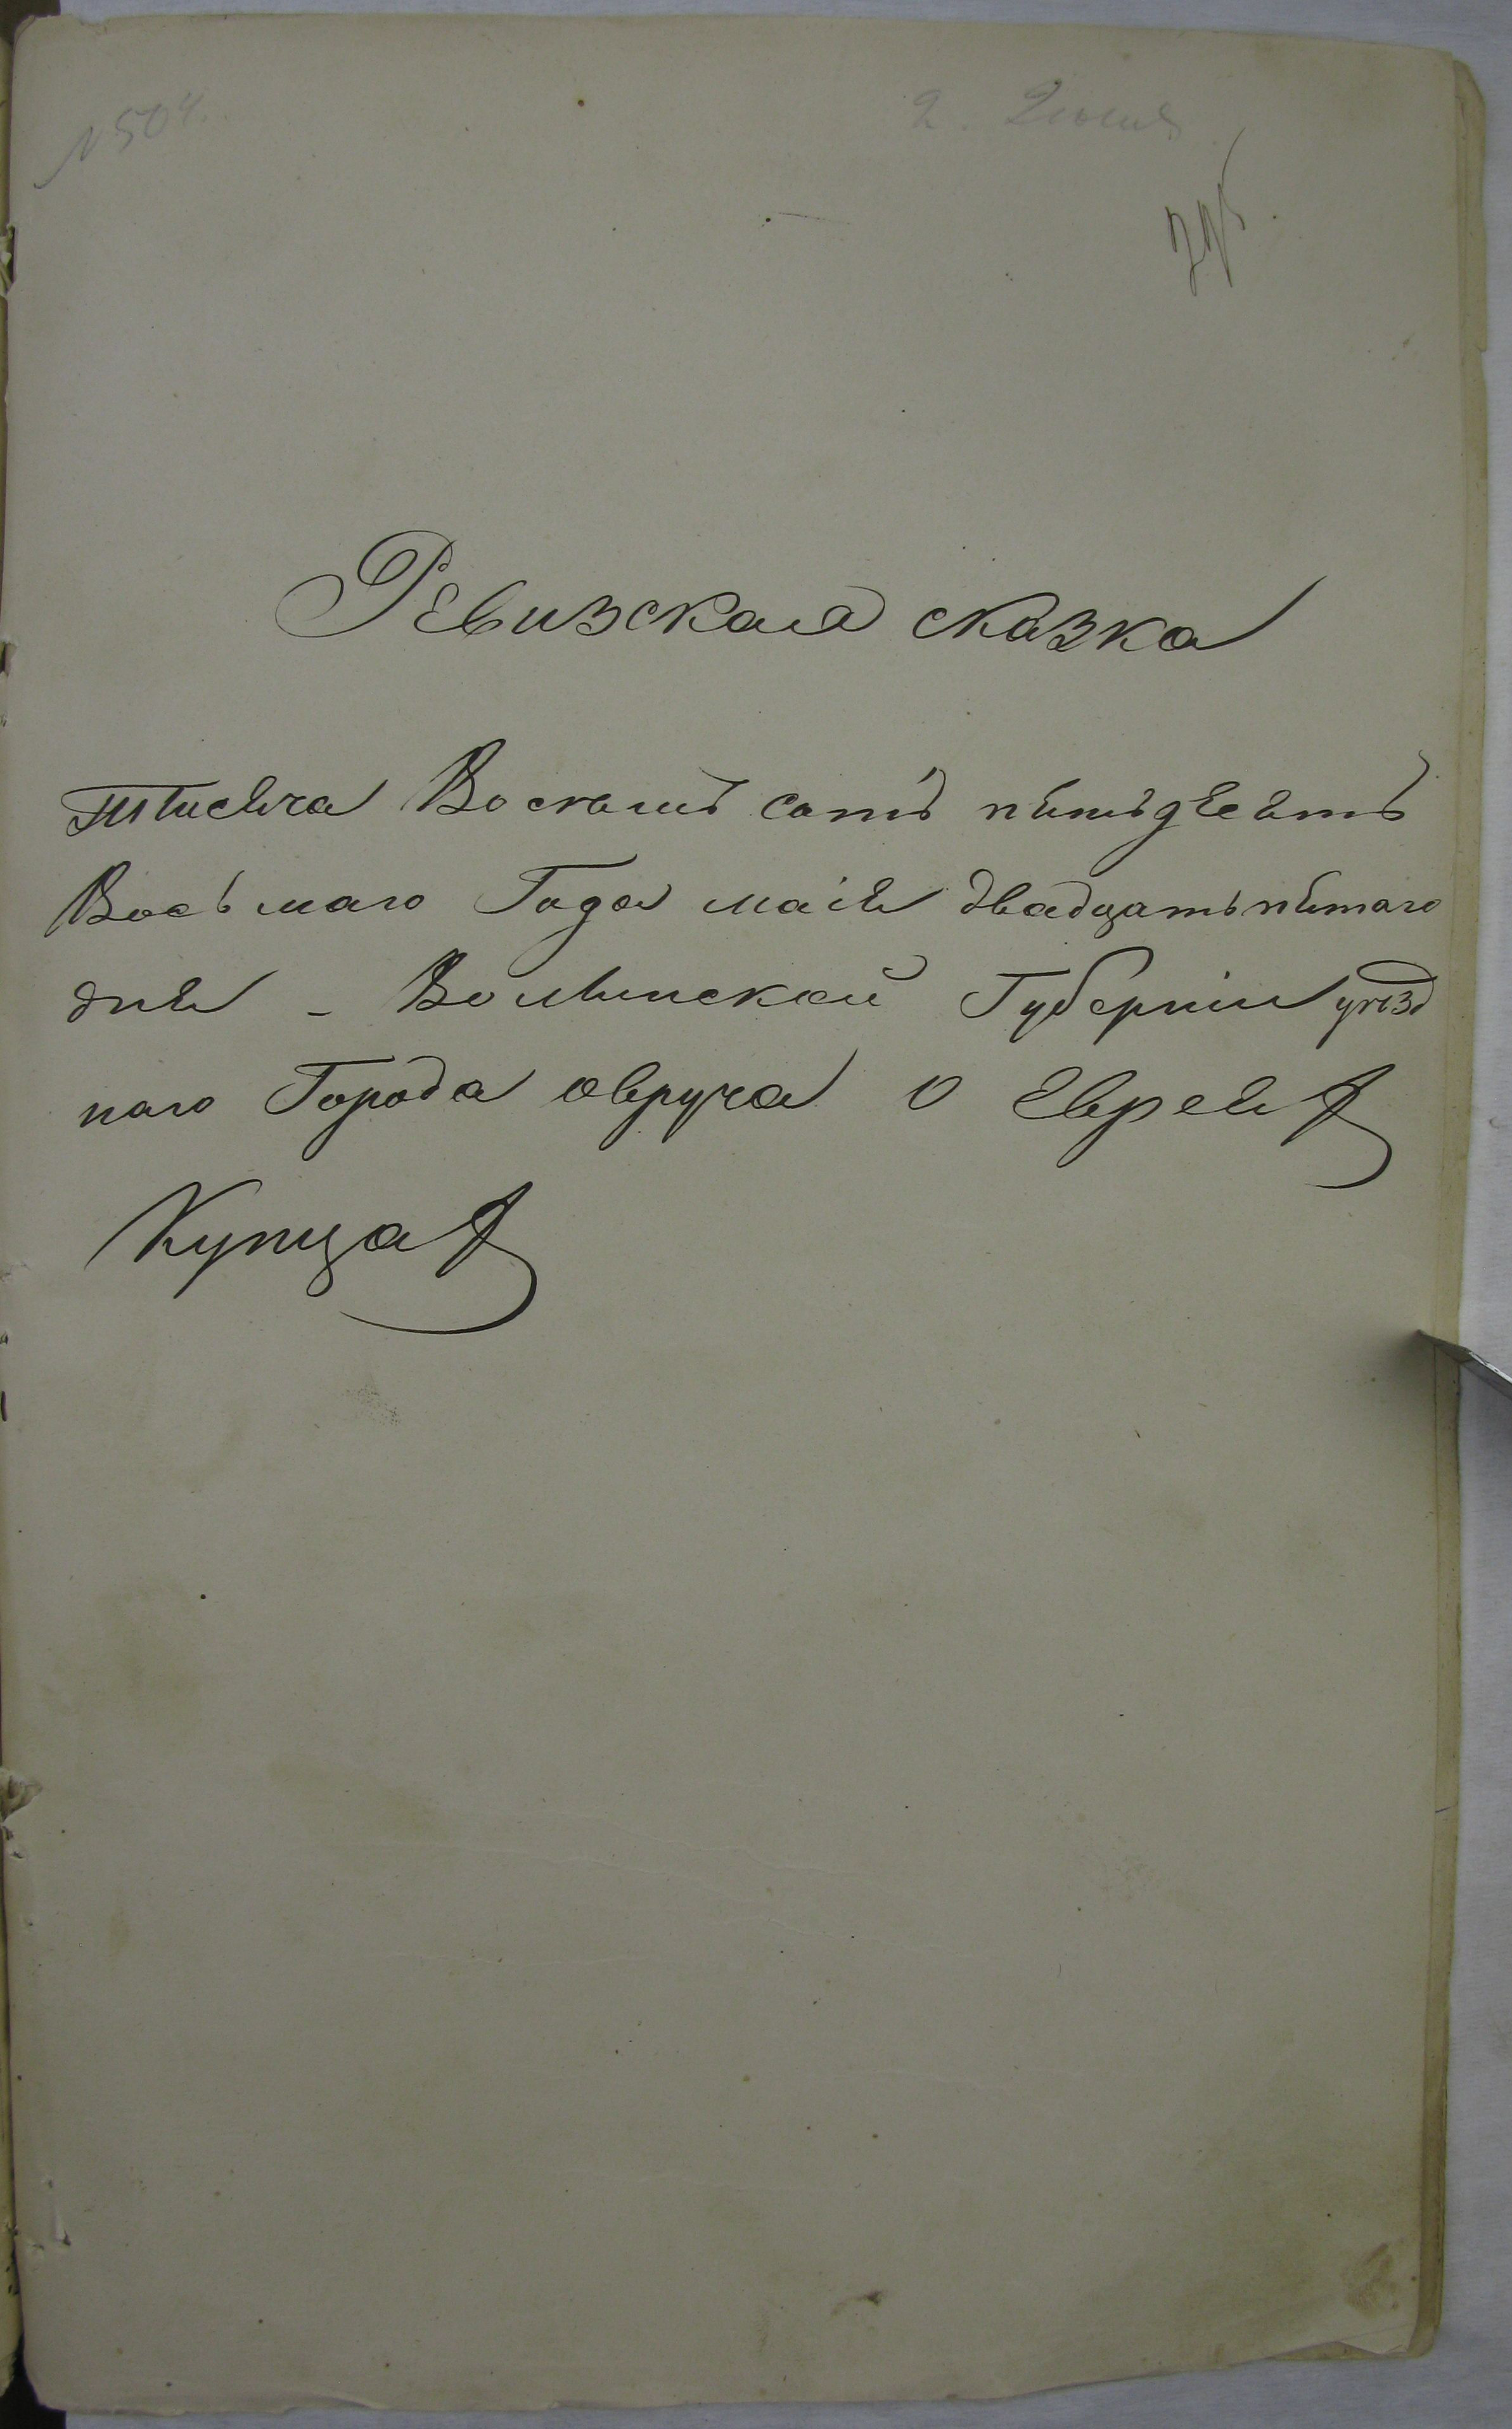 № 504.
2. Июня
Ревизская сказка
тысяча Восемь сотъ пятьдесятъ
Восьмаго Года маія двадцать пятаго
дня - Волынской Губерніи уѣзд
наго Города овруча о Евреях
Купцах